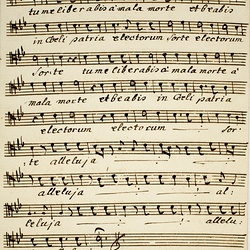 tu me liberabis a mala morte et beabis
in Coeli patria electorum Sorte electorum
Sor:te tu me liberabis a mala morte a
mala morte et beabis in Coeli patria
electorum electorum Sor:
:te alleluja
alleluja al:
leluja allelu: